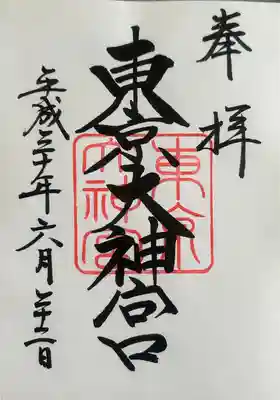 奉拝
東京大神宮
東京大神宮
平成三十年六月二十二日